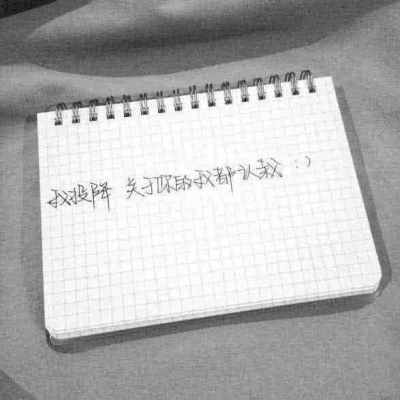 我投降 关于你的我都认栽 :)